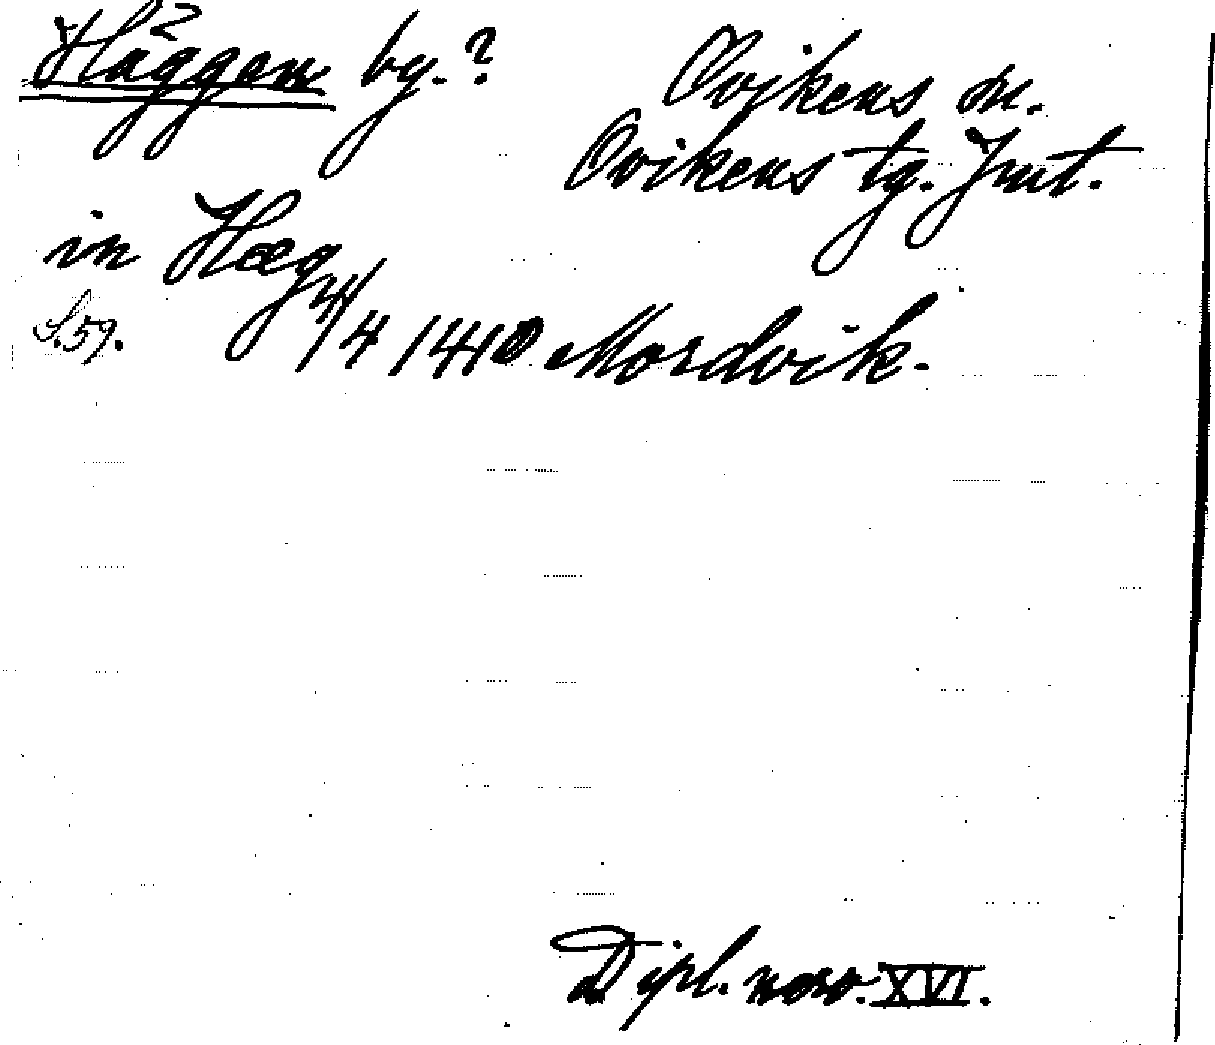 Häggen by.?
Ovikens sn.
Ovikens tg. Jmt.
in Hæg 4/4 1440 Mordvik.
S. 59.
Dipl. norv. XVI.